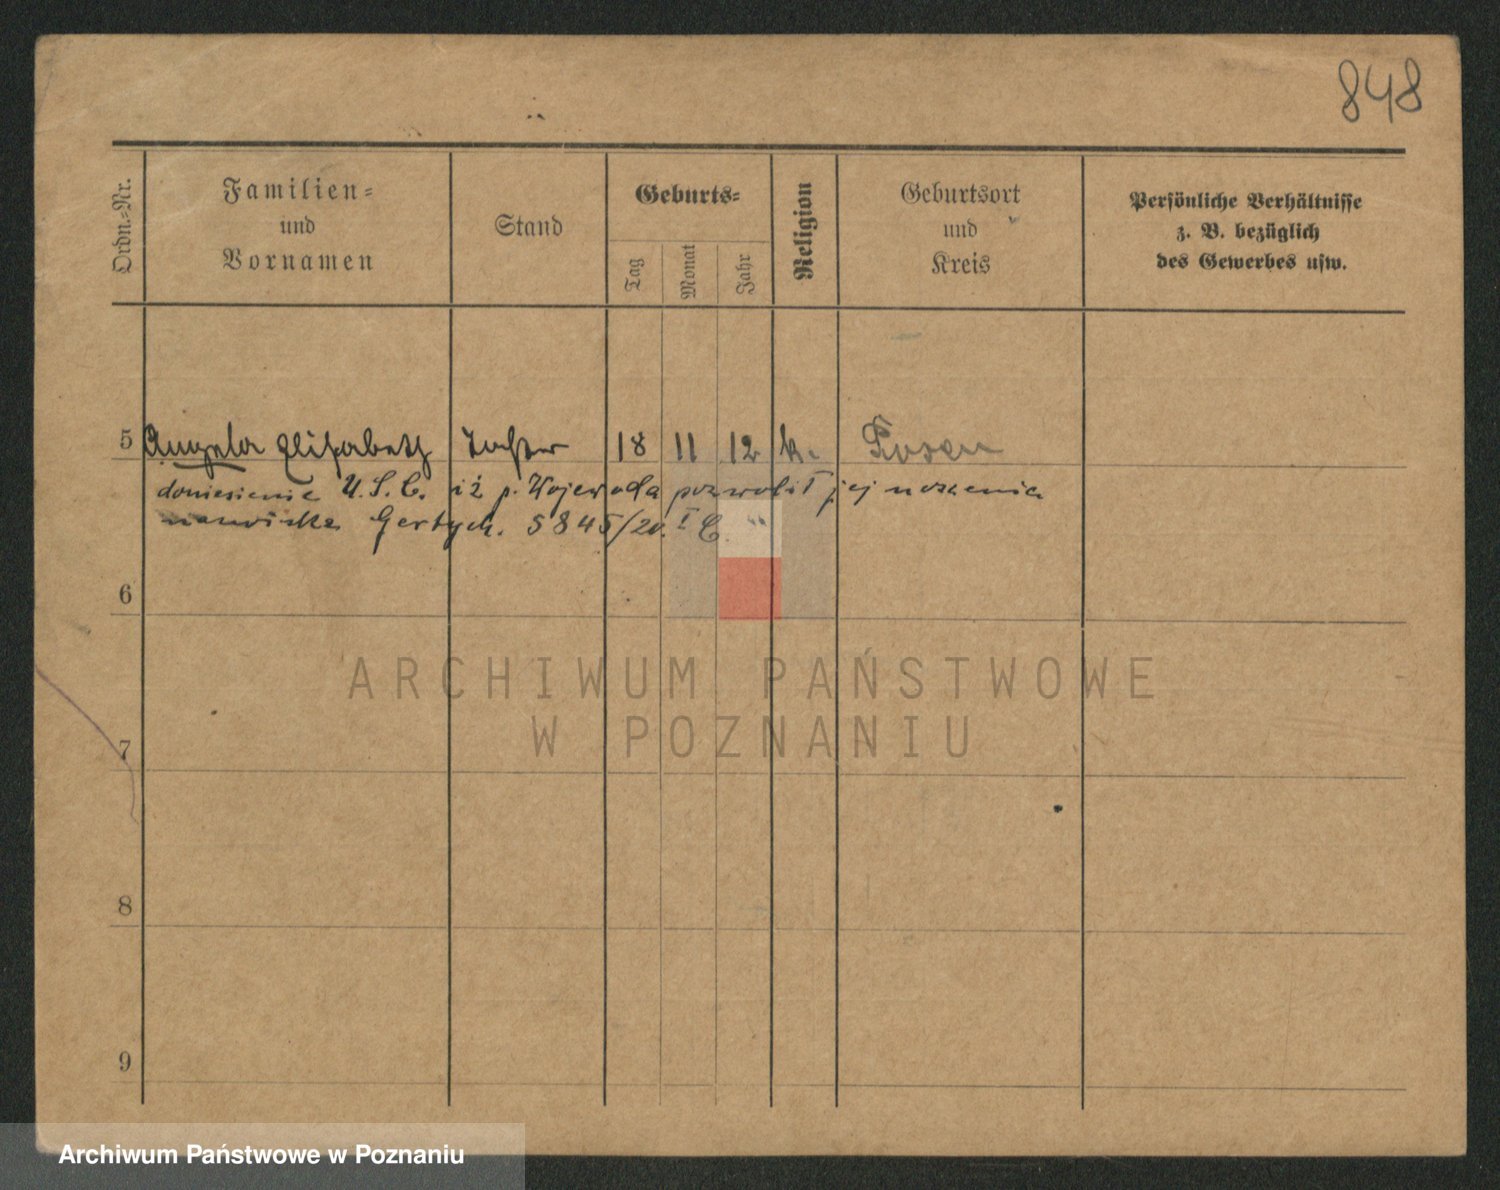 848
Ordn.-Nr.
Familien-
und
Vornamen
Stand
Geburts-
Tag
Monat
Jahr
Religion
Geburtsort
und
Kreis
Persönliche Verhältnisse
z. B. bezüglich
des Gewerbes usw.
5 Angela Elisabeth Tochter 18 11 12 k. Posen
doniesienie U.S.C. iż p. Wojewoda pozwolił jej noszenia
nazwiska Gertych. 5845/20. I C.
6
7
8
9
ARCHIWUM PAŃSTWOWE
W POZNANIU
Archiwum Państwowe w Poznaniu